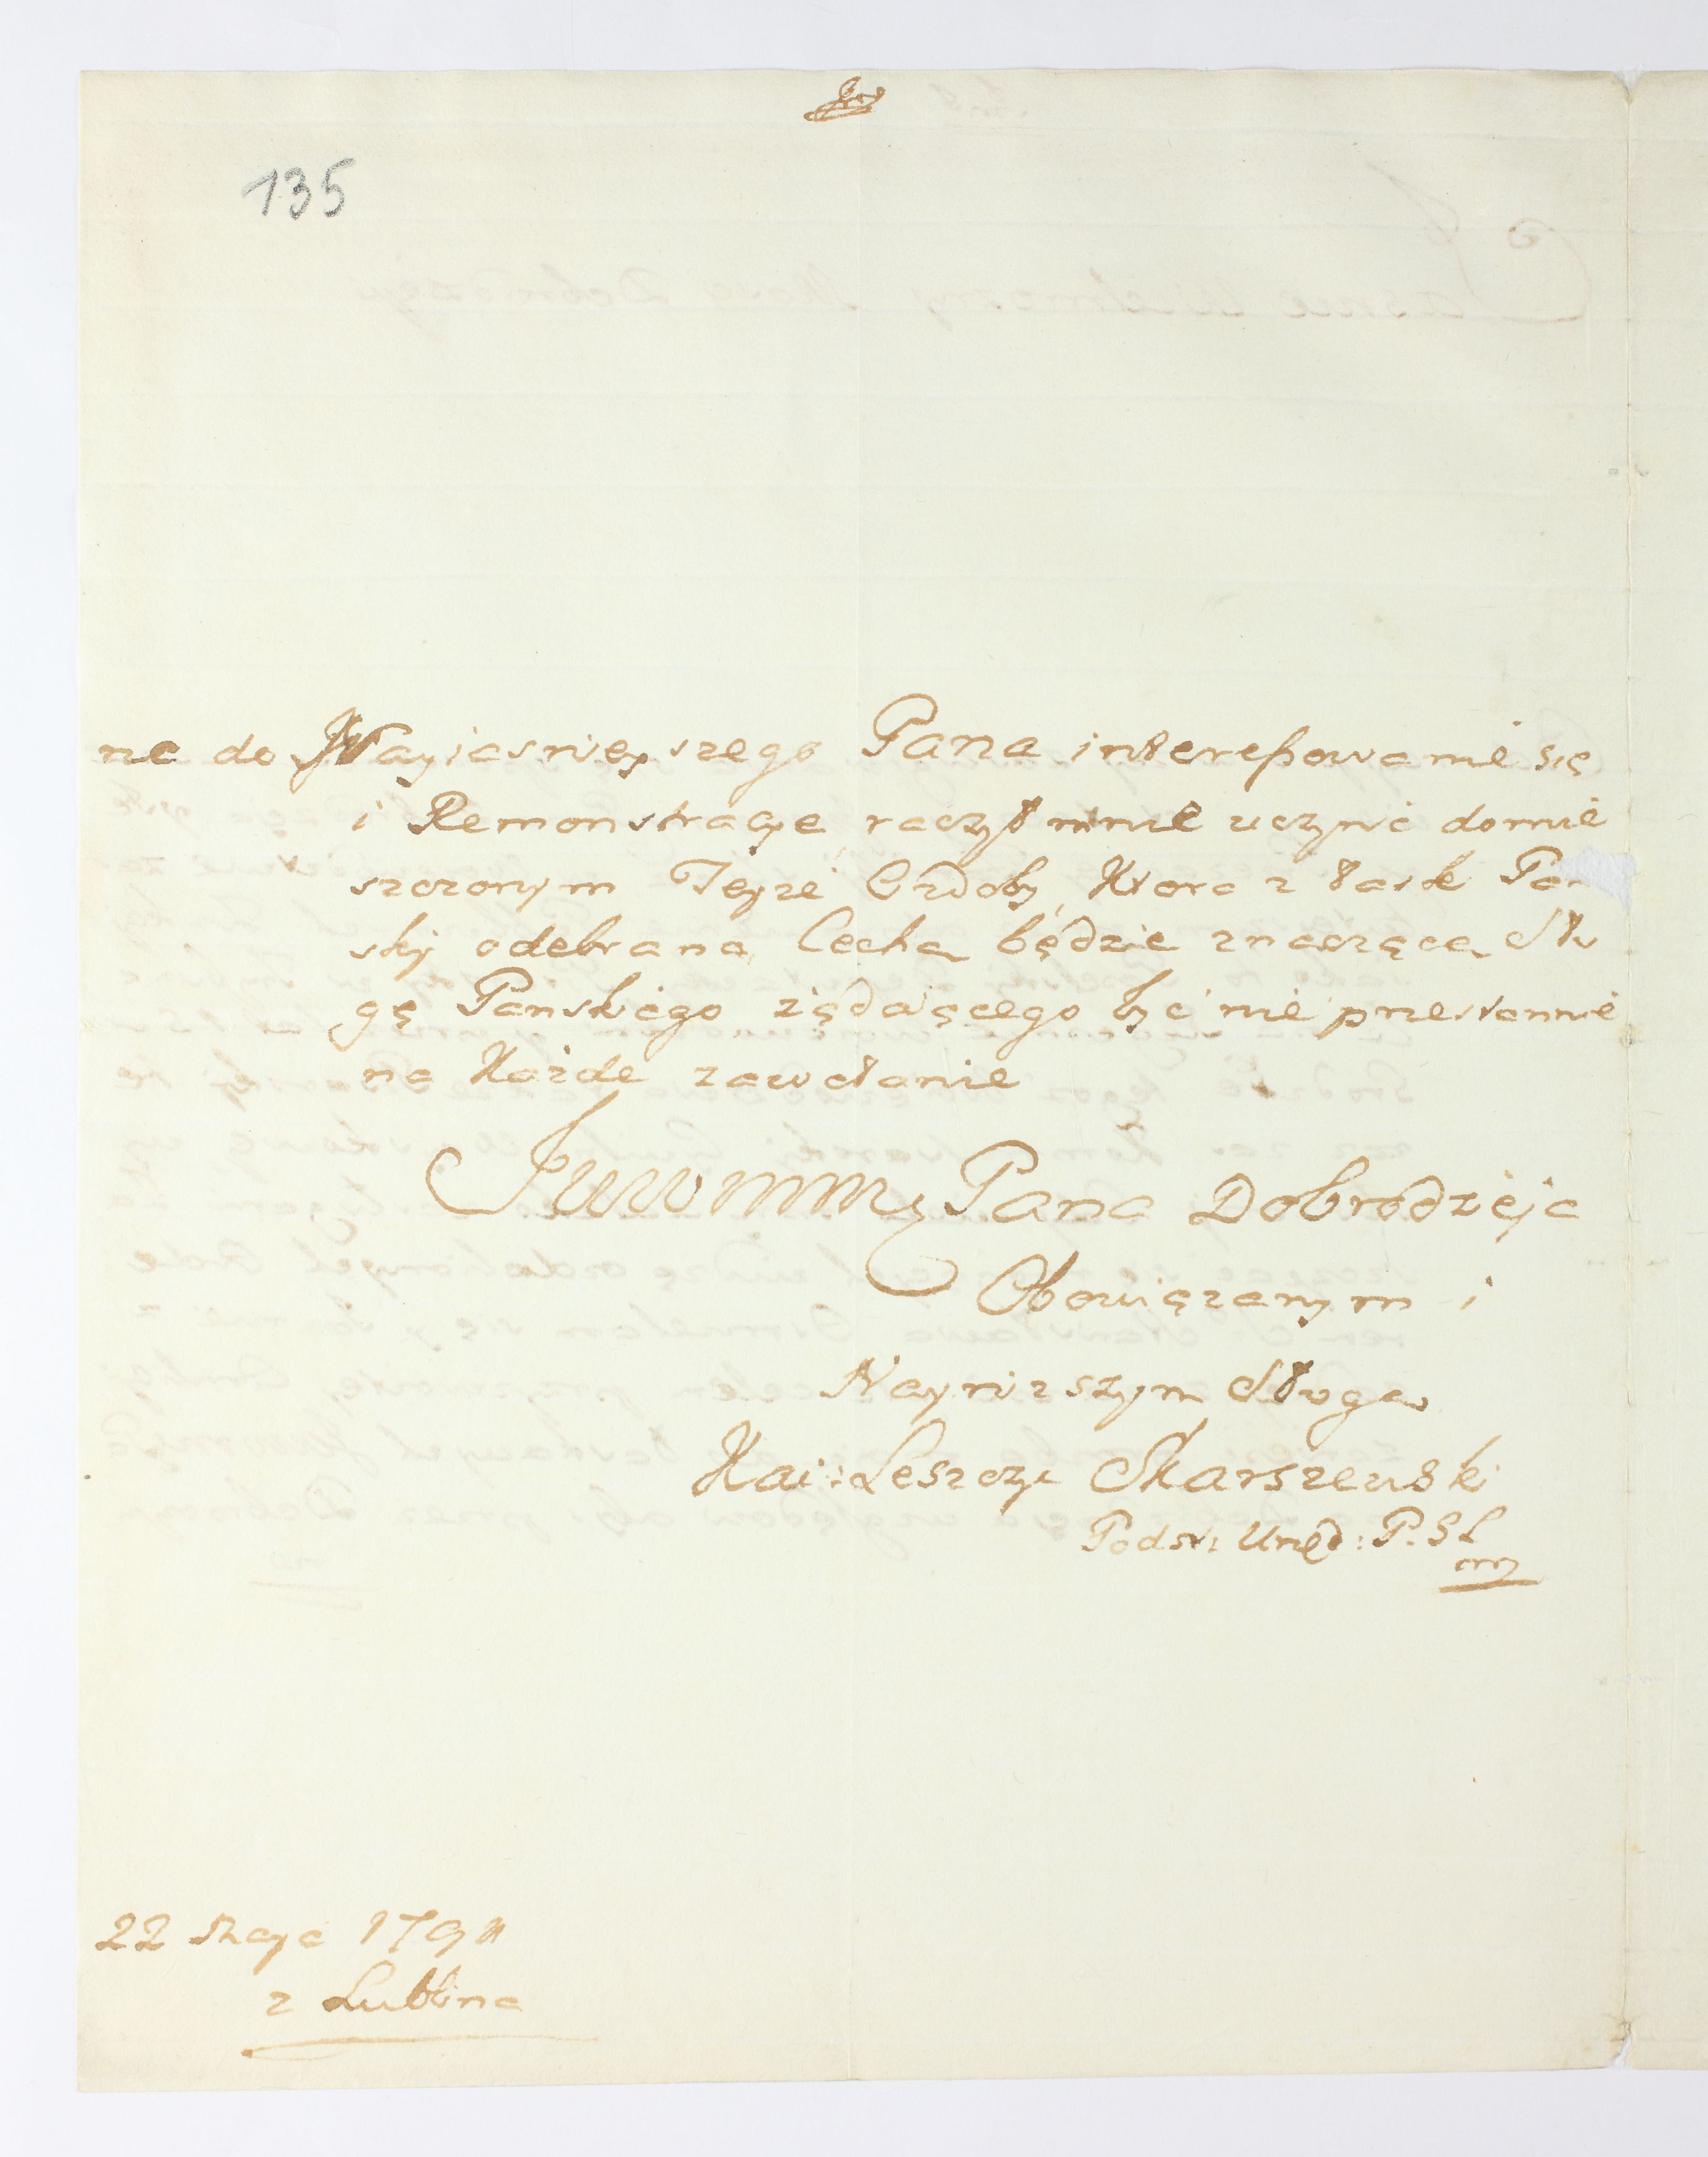 135
ne do Nayiasnieyszego Pana interessowanie się
i Remonstracye raczył mnie uczynić domie
szczonym Teyże Ozdoby, Ktora z łask Pań
skij odebrana, Cechą będzie znaczącą Słu
gę Panskiego ządaiącego być nie przestannie
na Każde zawołanie
JWWMMM Pana Dobrodzieja
Obowiązanym i
Nayniższym Sługą
Kai: Leszczyc Skarszewski
Podst: Urzęd: P. S L
22 Maya 1791
z Lublina